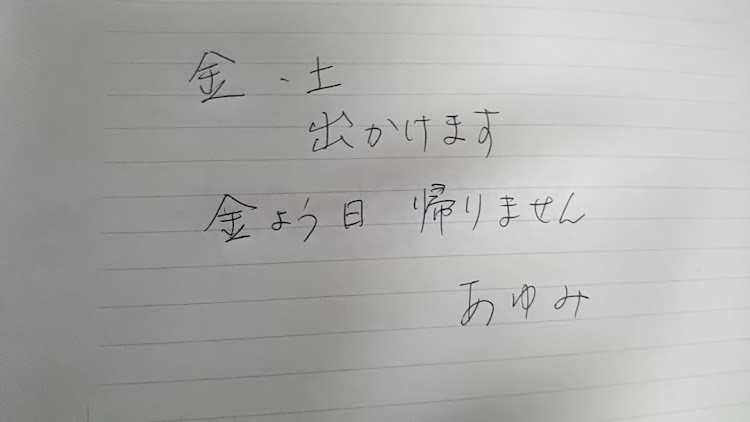 金・土
出かけます
金よう日 帰りません
あゆみ